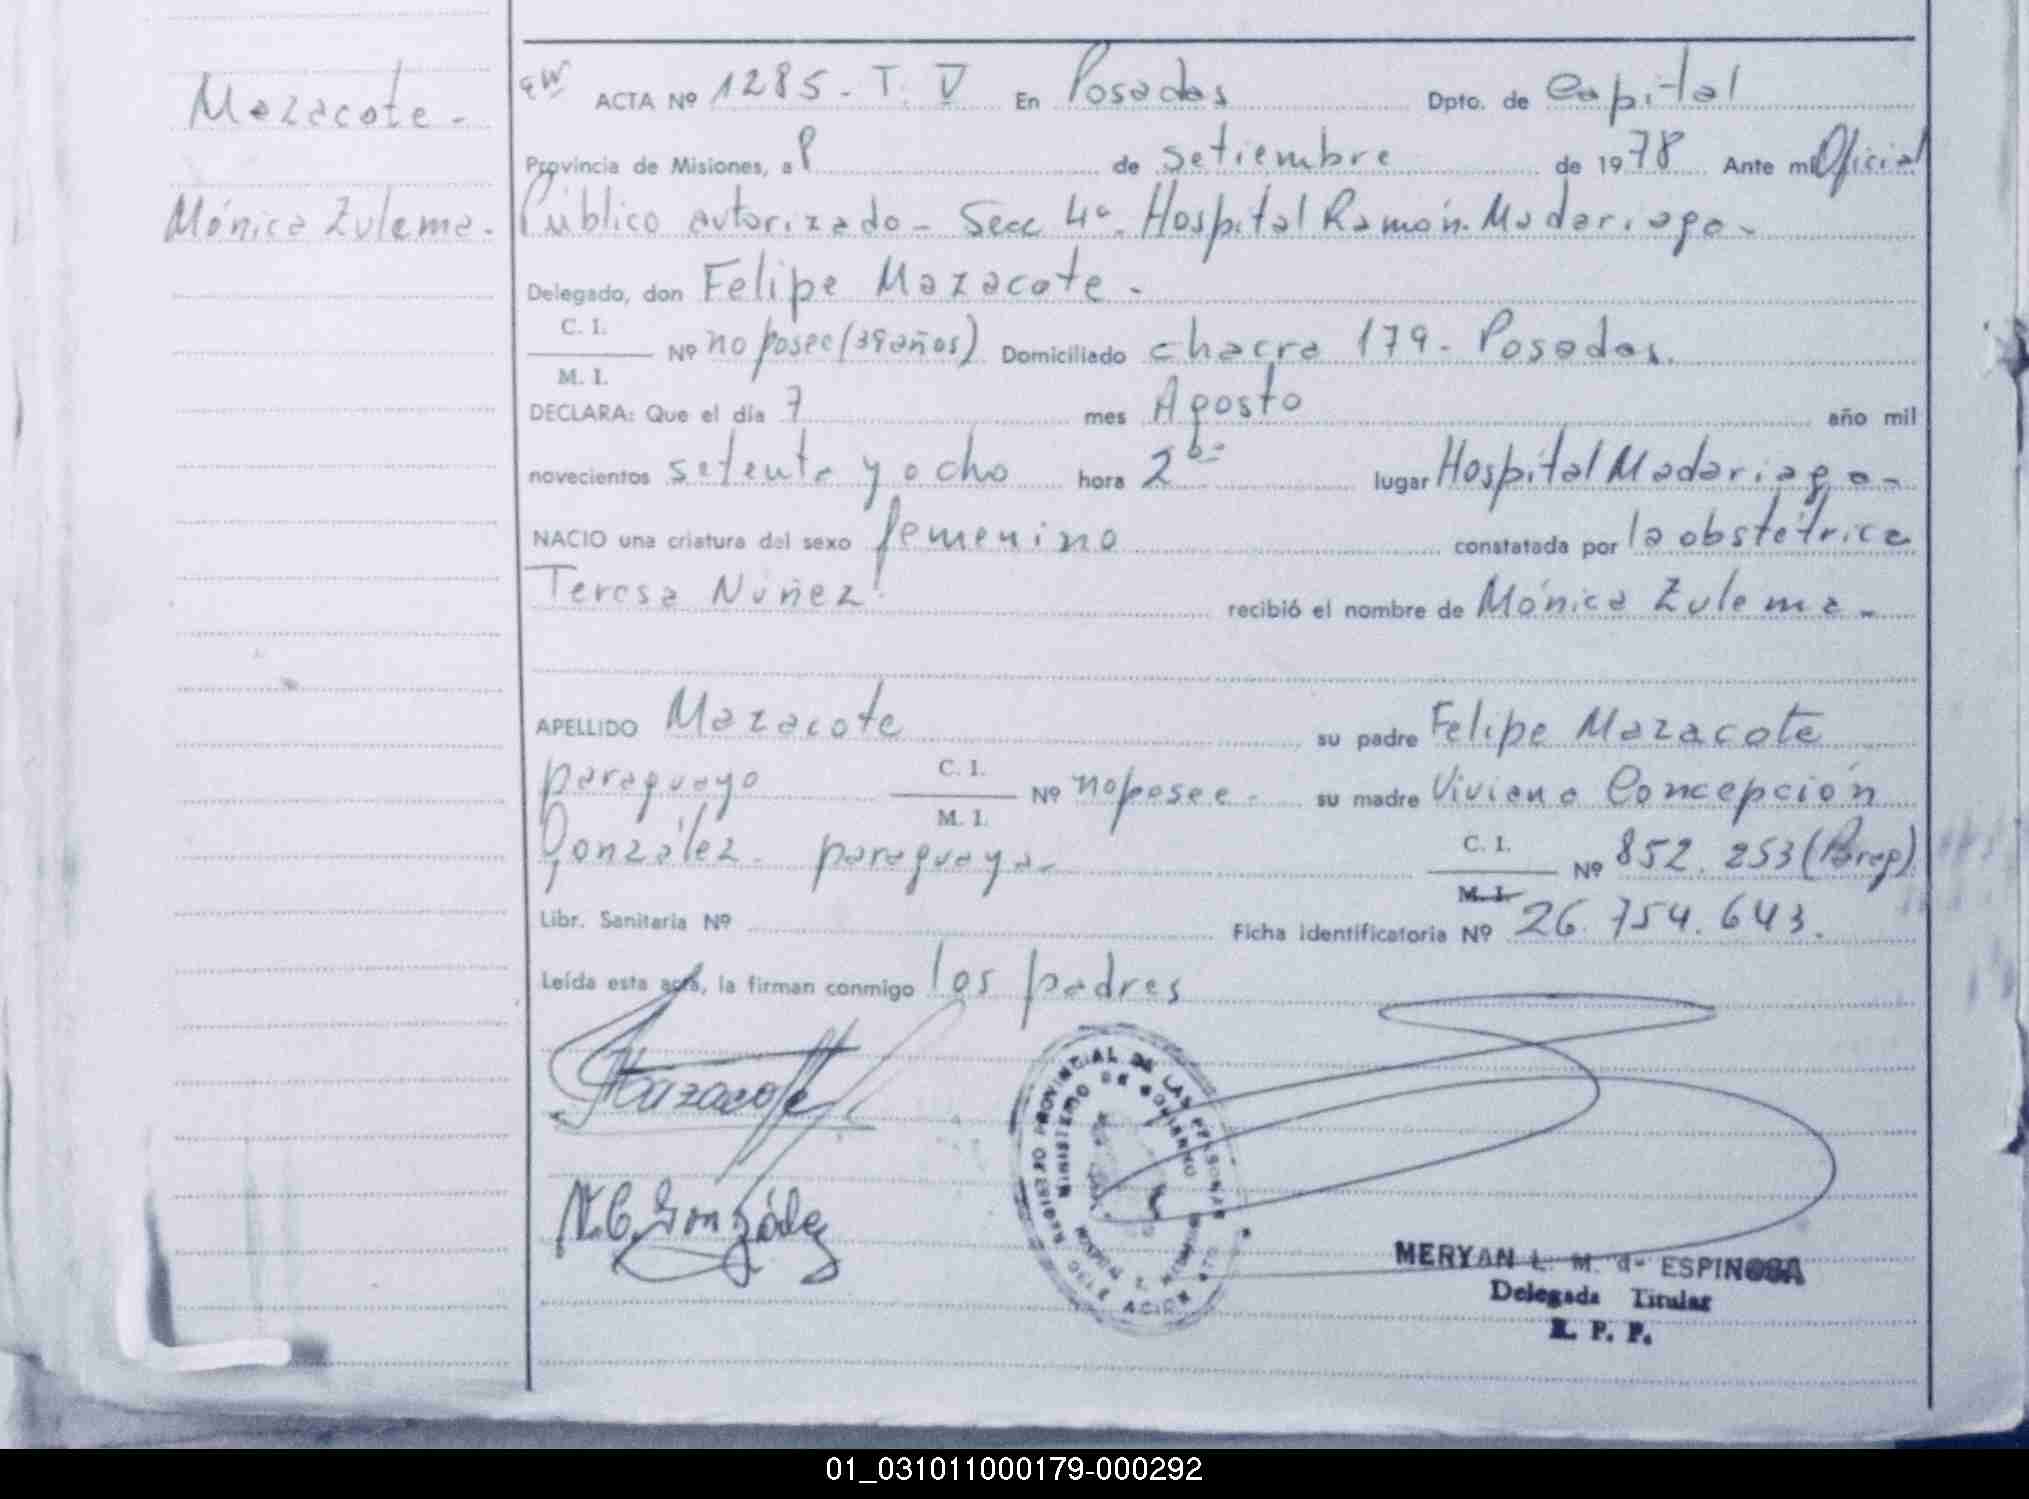 Mazacote -
Mónica Zulema -
ACTA Nº 1285 - T. V En Posadas Dpto. de Capital
Provincia de Misiones, a 8 de setiembre de 1978 Ante mi Oficial
Público autorizado - Secc 4ª. Hospital Ramón Madariaga -
Delegado, don Felipe Mazacote -
C. I.
M. I. Nº no posee (39 años) Domiciliado chacra 179 - Posadas.
DECLARA: Que el día 7 mes Agosto año mil
novecientos setenta y ocho hora 2 lugar Hospital Madariaga -
NACIO una criatura del sexo femenino constatada por la obstétrica
Teresa Nuñez recibió el nombre de Mónica Zulema -
APELLIDO Mazacote su padre Felipe Mazacote
paraguayo C. I. M. I. Nº no posee - su madre Viviana Concepción
González - paraguaya - C. I. M. I. Nº 852.253 (Parag)
Libr. Sanitaria Nº Ficha identificatoria Nº 26.754.643.
Leída esta acta, la firman conmigo los padres
Mazacote
V.C. González
REGISTRO PROVINCIAL DE LAS PERSONAS
MINISTERIO DE GOBIERNO
MERYAN L. M. de ESPINOSA
Delegada Titular
R. P. P.
01_031011000179-000292